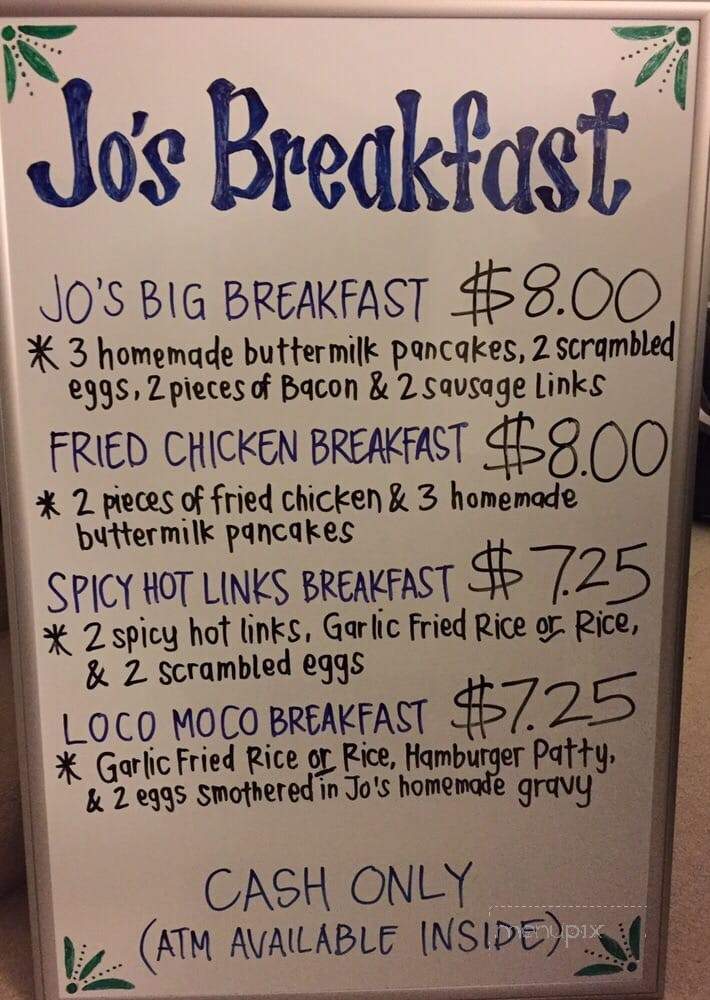 Jo's Breakfast
JO'S BIG BREAKFAST $8.00
* 3 homemade buttermilk pancakes, 2 scrambled
eggs, 2 pieces of Bacon & 2 sausage Links
FRIED CHICKEN BREAKFAST $8.00
* 2 pieces of fried chicken & 3 homemade
buttermilk pancakes
SPICY HOT LINKS BREAKFAST $7.25
* 2 spicy hot links, Garlic Fried Rice or Rice,
& 2 scrambled eggs
LOCO MOCO BREAKFAST $7.25
* Garlic Fried Rice or Rice, Hamburger Patty,
& 2 eggs smothered in Jo's homemade gravy
CASH ONLY
(ATM AVAILABLE INSIDE)
menupix